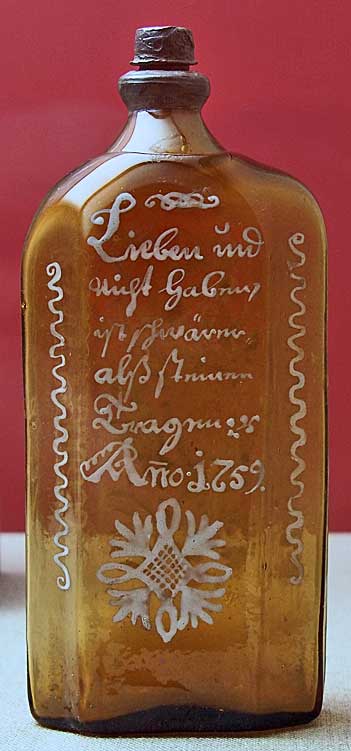 Lieben und
nicht haben,
ist schwärer
alß steinen
Tragen
Anno. 1759.